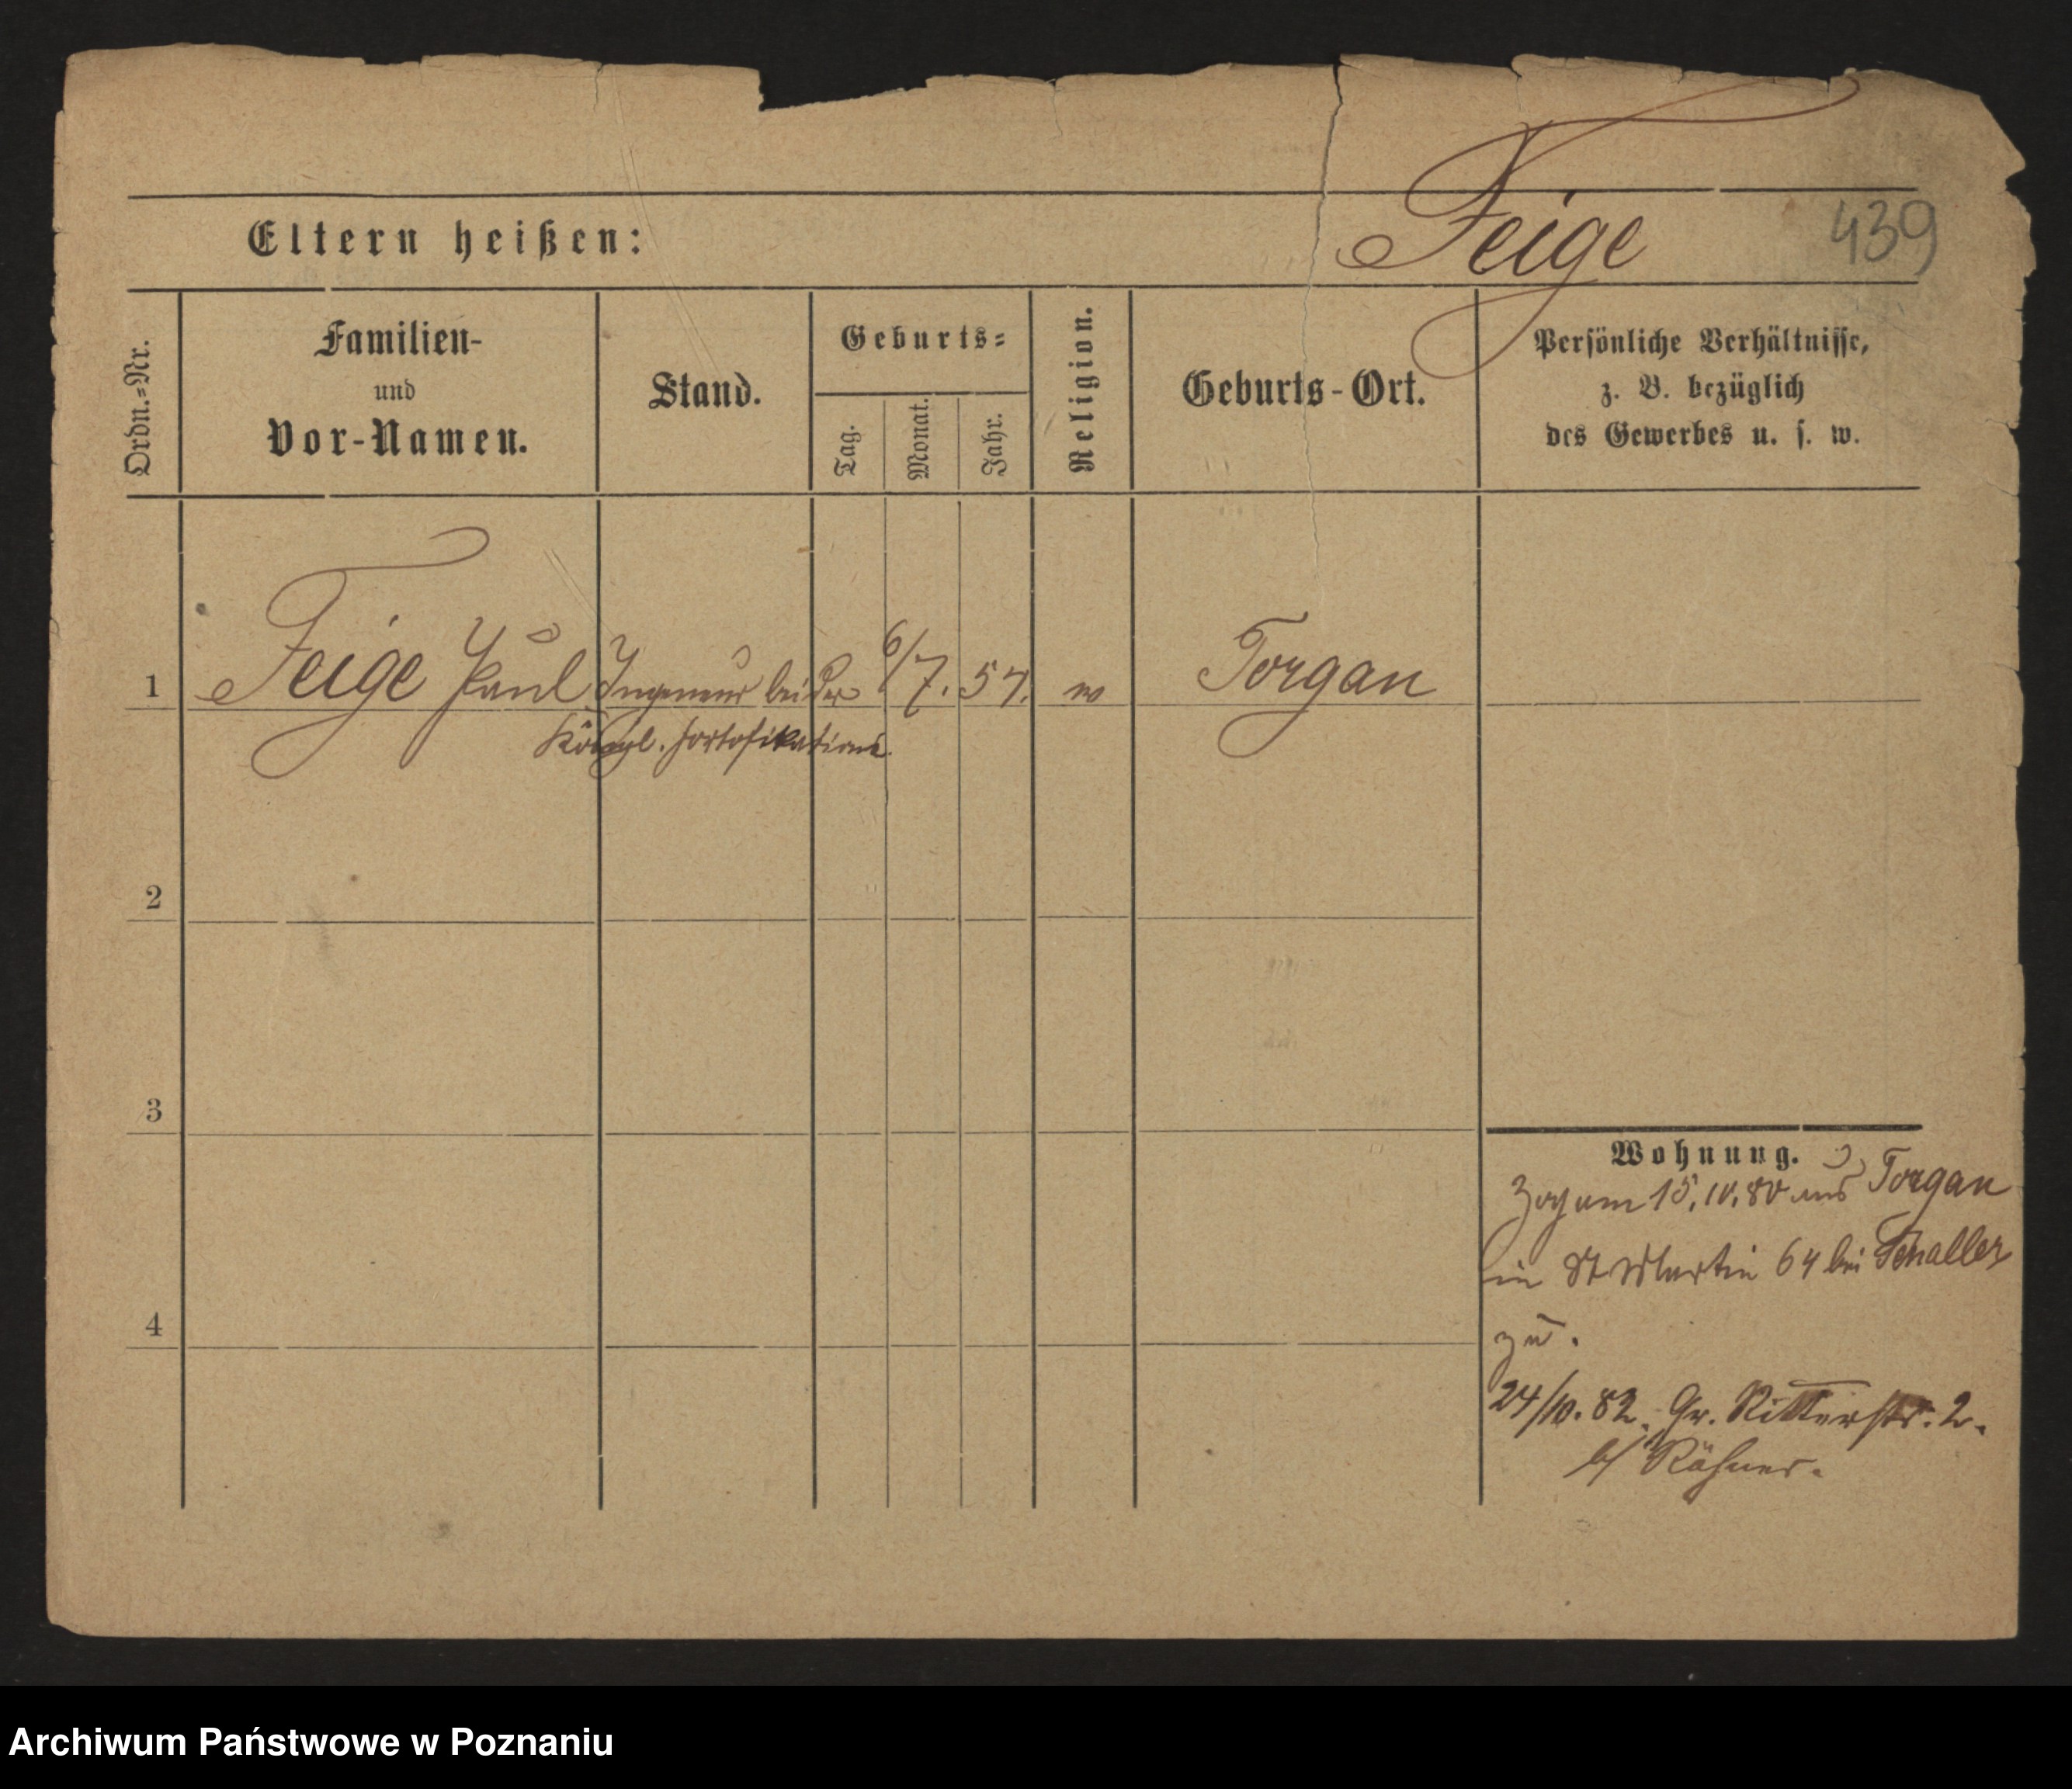 Feige
439
Eltern heißen:
Ordn.=Nr.
Familien-
und
Vor-Namen.
Stand.
Geburts=
Tag.
Monat.
Jahr.
Religion.
Geburts-Ort.
Persönliche Verhältnisse,
z. B. bezüglich
des Gewerbes u. s. w.
1 Feige Paul Ingenieur bei der 6/7. 57. Torgau
Königl. Fortifikation.
2
3
4
Wohnung.
Zog am 15.10.80 aus Torgau
in St Martin 64 bei Schaller
zu.
24/10. 82. Gr. Ritterstr. 2.
b/ Röhner.
Archiwum Państwowe w Poznaniu